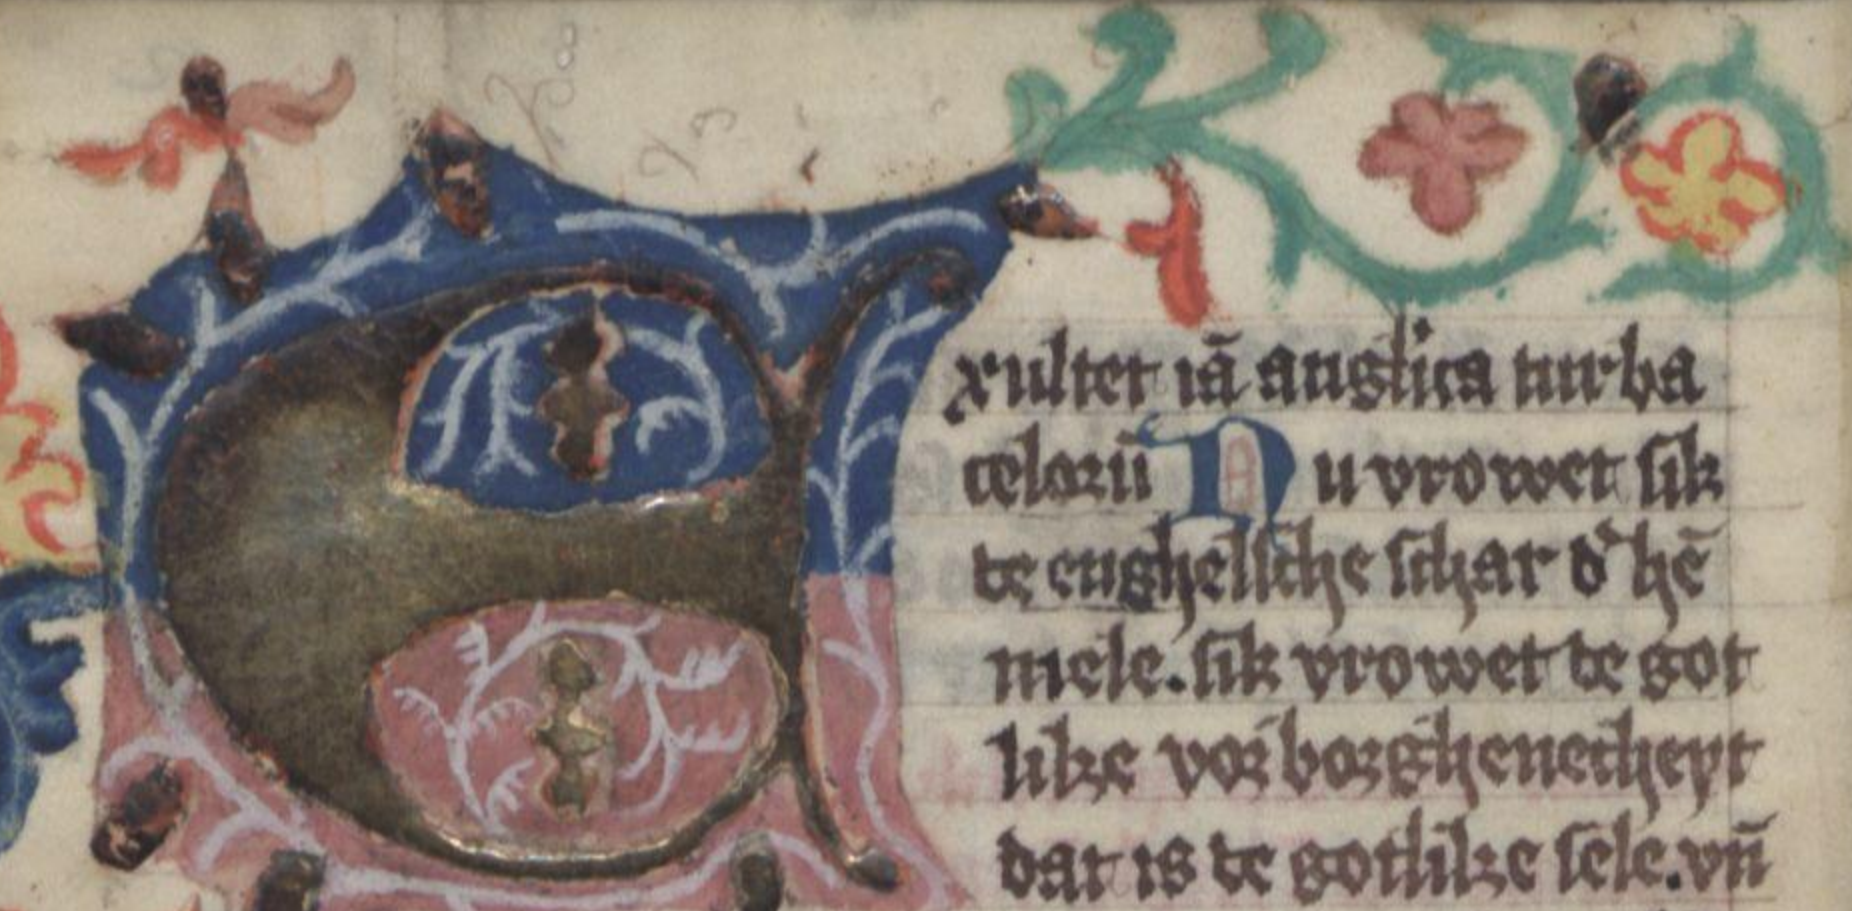 Exultet iā anglica turba
celorū Nu vrowet sik
te enghelsche schar d' hē
mele. sik vrowet te got
like vorborghenetheyt
dat is te gotlike sele. vn̄